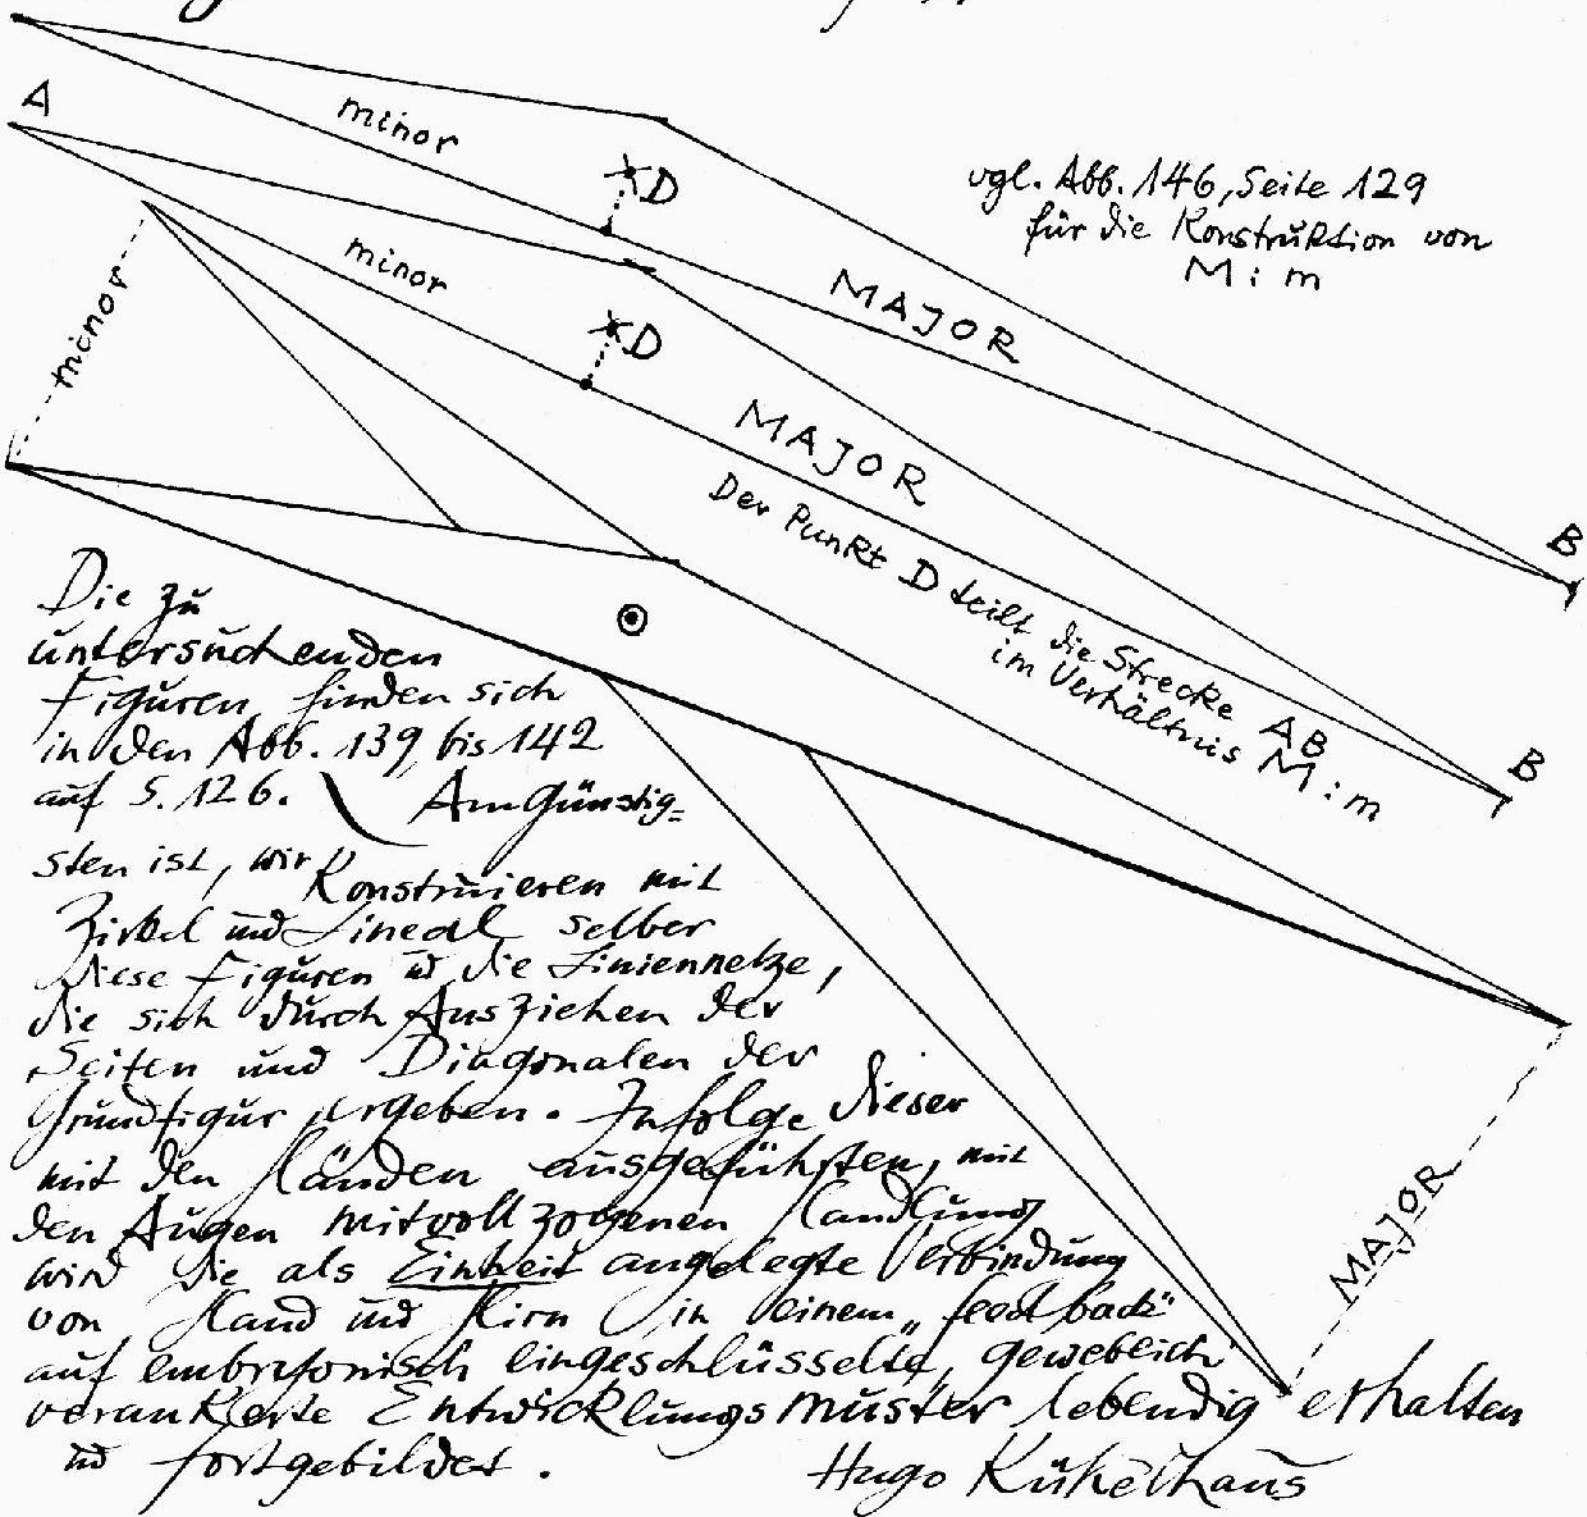 A
minor
D
vgl. Abb. 146, Seite 129
für die Konstruktion von
M : m
minor
minor
D
MAJOR
MAJOR
Der Punkt D teilt die Strecke AB
im Verhältnis M : m
B
B
Die zu
untersuchenden
Figuren finden sich
in den Abb. 139 bis 142
auf S. 126.
Am Günstig=
sten ist, wir Konstruieren mit
Zirkel und Lineal selber
diese Figuren ud die Liniennetze,
die sich durch Ausziehen der
Seiten und Diagonalen der
Grundfigur ergeben. Infolge dieser
mit den Händen ausgeführten, mit
den Augen mitvollzogenen Handlung
wird die als Einheit angelegte Verbindung
von Hand und Hirn in einem „feedback"
auf embryonisch eingeschlüsselte, geweblich
verankerte Entwicklungsmuster lebendig erhalten
ud fortgebildet.
Hugo Kükelhaus
MAJOR